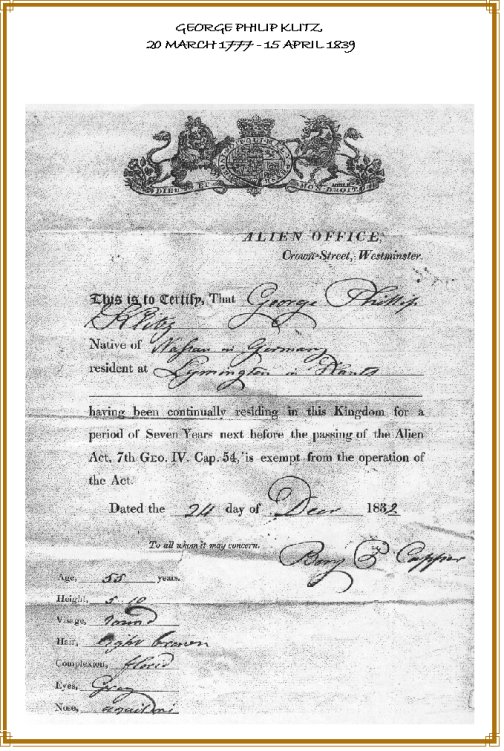 GEORGE PHILIP KLITZ
20 MARCH 1777 - 15 APRIL 1839
DIEU ET MON DROIT
ALIEN OFFICE,
Crown-Street, Westminster.
This is to Certify, That George Phillip
Klitz
Native of Nassau in Germany
resident at Lymington in Hants
having been continually residing in this Kingdom for a
period of Seven Years next before the passing of the Alien
Act, 7th GEO. IV. Cap. 54, is exempt from the operation of
the Act.
Dated the 24 day of Decr 1832
To all whom it may concern.
Age, 55 years.
Height, 5 10
Visage, round
Hair, light brown
Complexion, florid
Eyes, Grey
Nose,